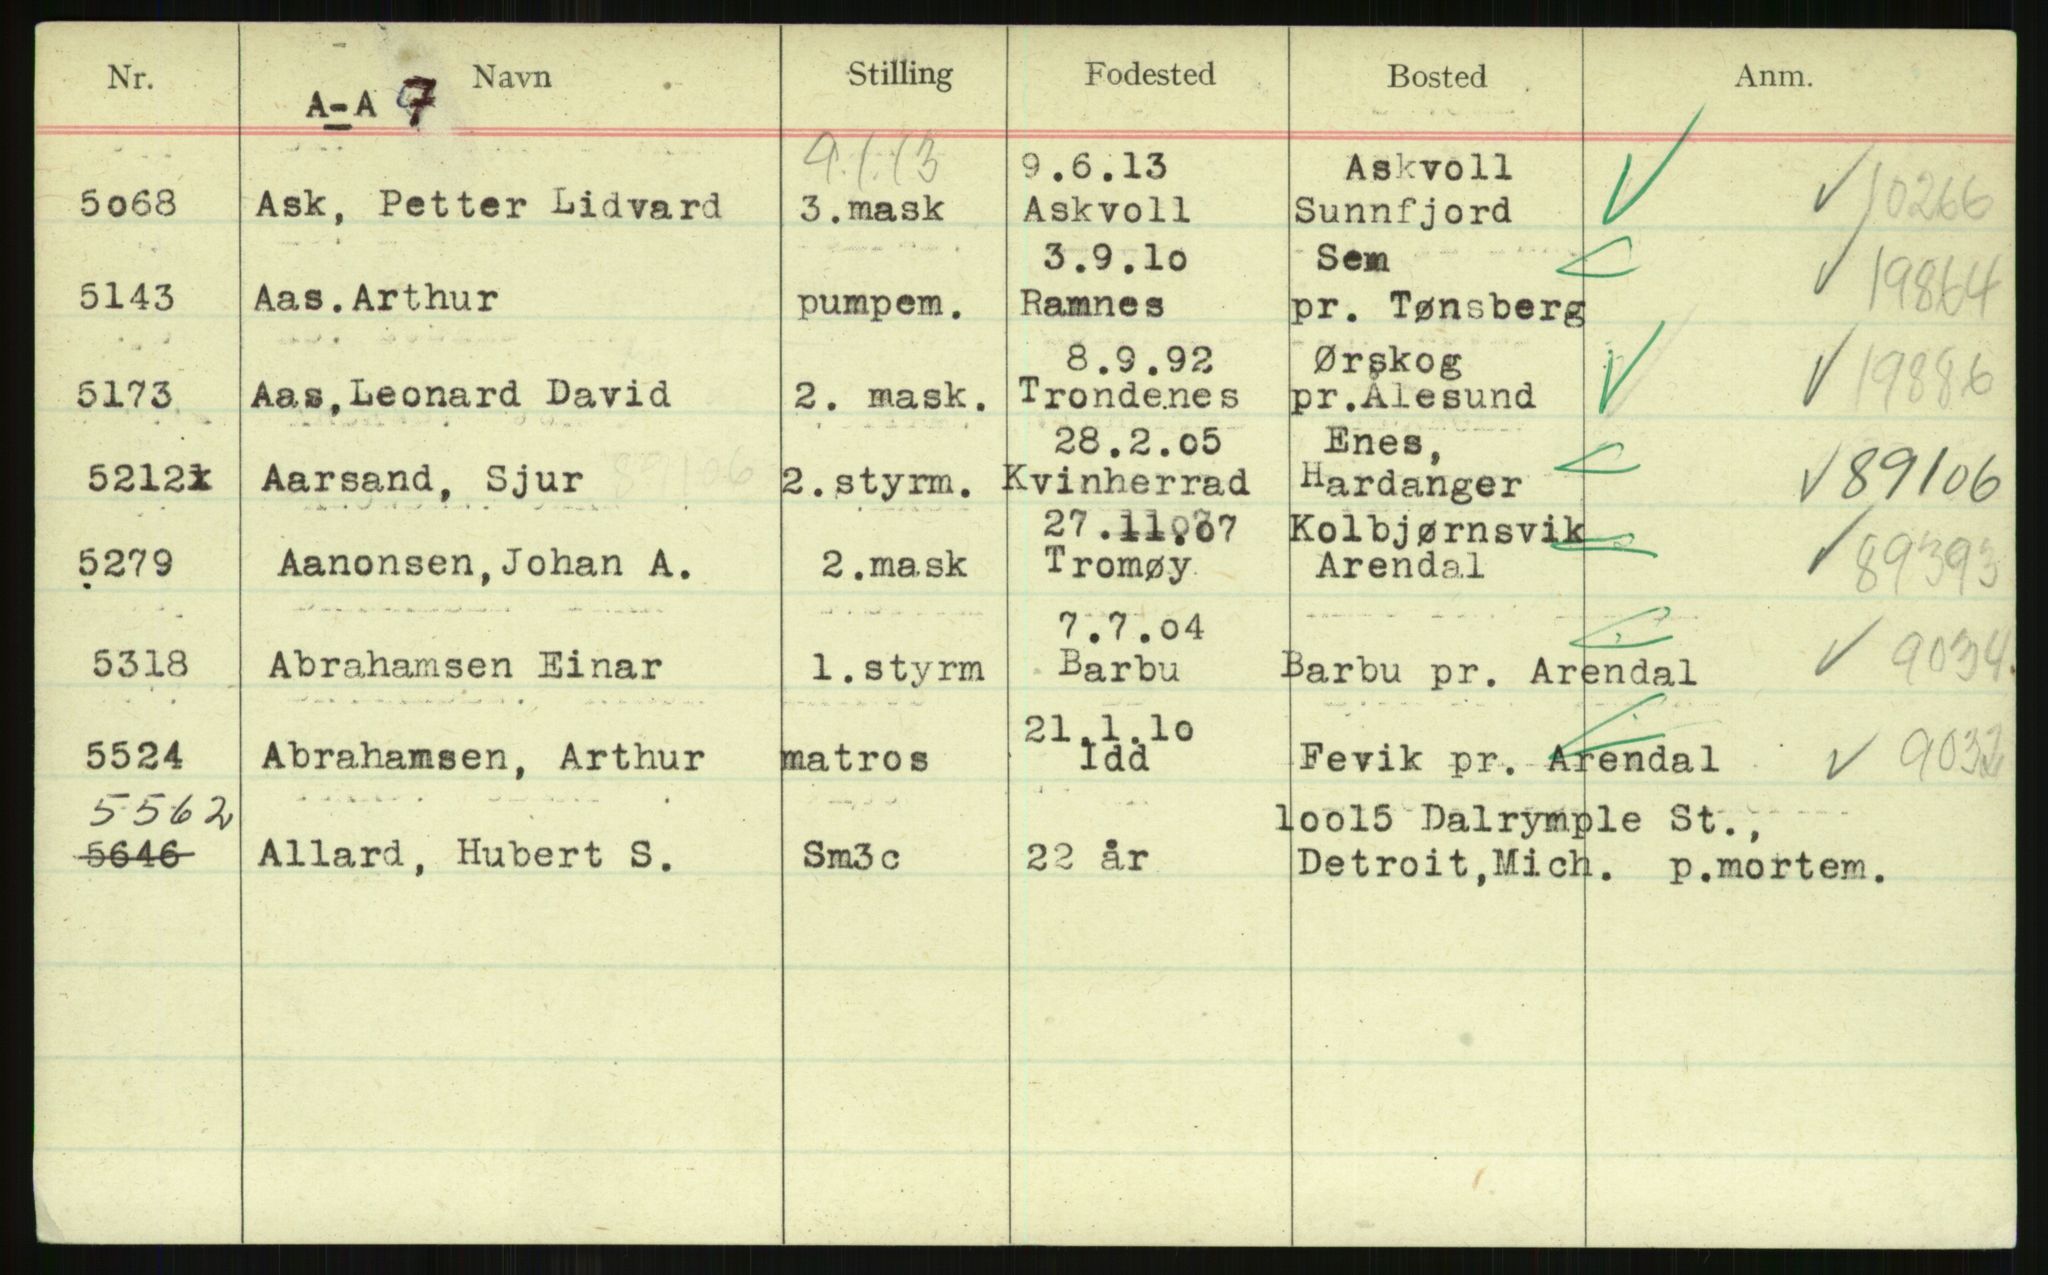 Nr. Navn Stilling Fodested Bosted Anm.
A-A 7
9.6.13 Askvoll
5o68 Ask, Petter Lidvard 3.mask Askvoll Sunnfjord 10266
3.9.1o Sem
5143 Aas.Arthur pumpem. Ramnes pr. Tønsberg 19864
8.9.92 Ørskog
5173 Aas,Leonard David 2. mask. Trondenes pr.Ålesund 19886
28.2.o5 Enes,
5212 Aarsand, Sjur 89106 2.styrm. Kvinherrad Hardanger 89106
27.11.o7 Kolbjørnsvik
5279 Aanonsen,Johan A. 2.mask Tromøy Arendal 89393
7.7.o4
5318 Abrahamsen Einar 1.styrm Barbu Barbu pr. Arendal 9034
21.1.1o
5524 Abrahamsen, Arthur matros Idd Fevik pr. Arendal 9032
5562 1oo15 Dalrymple St.,
5646 Allard, Hubert S. Sm3c 22 år Detroit,Mich. p.mortem.